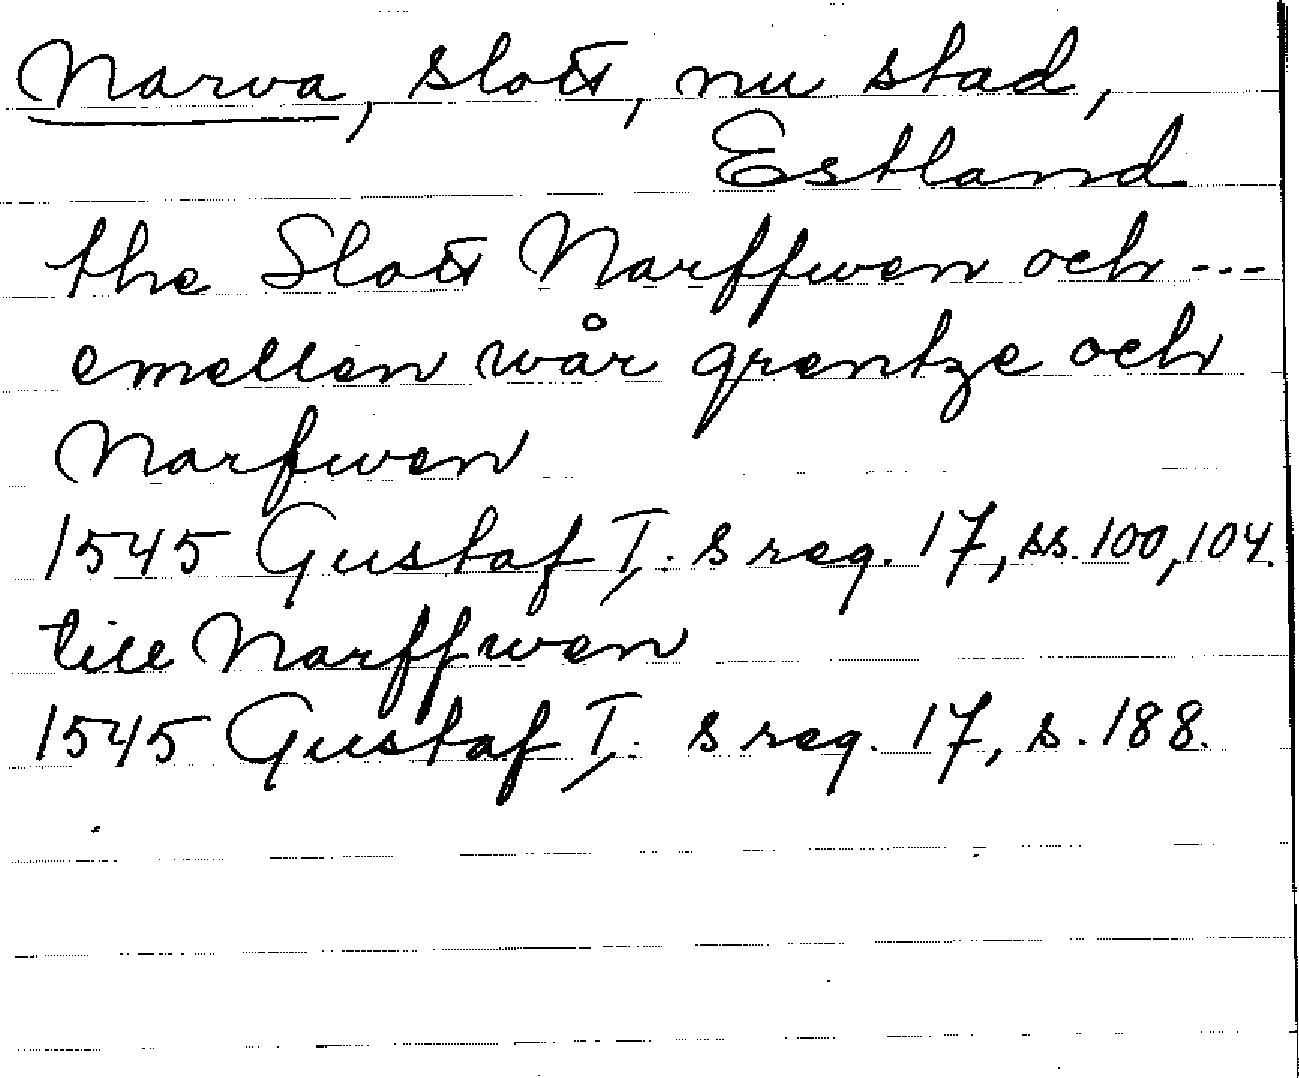 Narva, slott, nu stad,
Estland
the Slott Narffwen och ---
emellen wår grentze och
Narfwen
1545 Gustaf I. s reg. 17, ss. 100, 104.
till Narffwen
1545 Gustaf I. s reg. 17, s. 188.